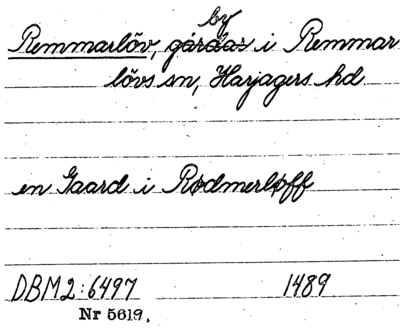 by
Remmarlöv, gårdar i Remmar
lövs sn, Harjagers hd
en Gaard i Rødmerløff
DBM2:6497 1489
Nr 5619.